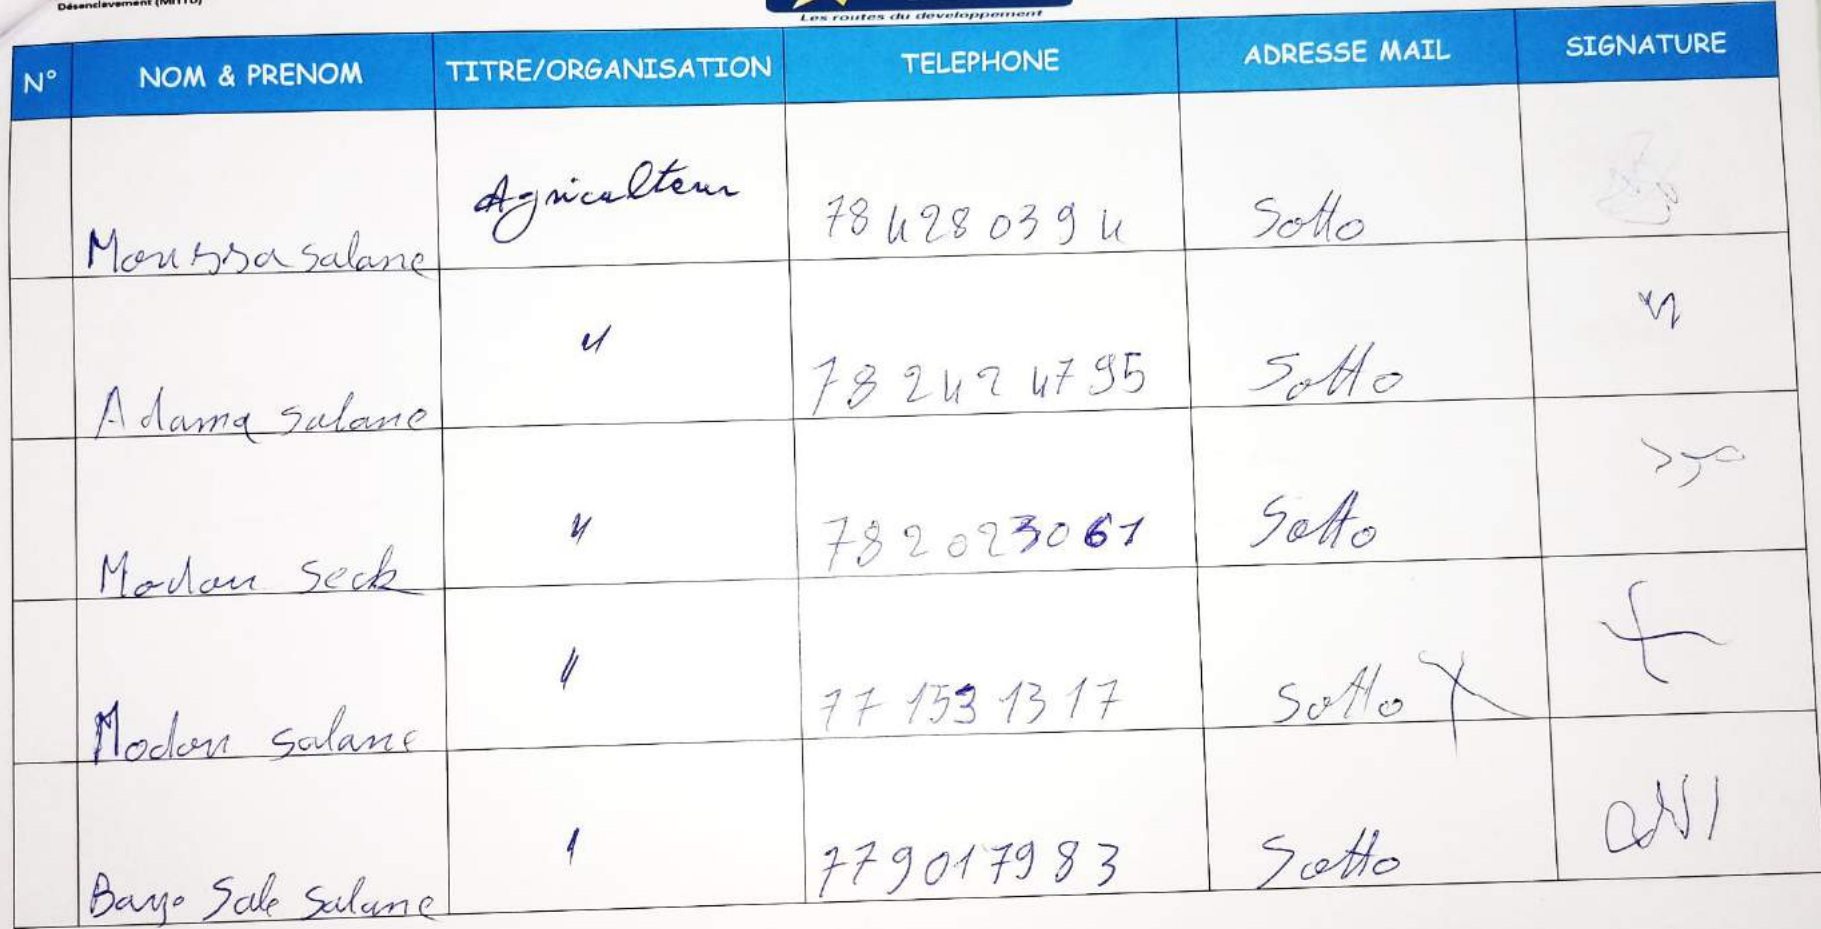 Désenclavement (MITTD)
Les routes du développement
N° NOM & PRENOM TITRE/ORGANISATION TELEPHONE ADRESSE MAIL SIGNATURE
Moussa Salane Agriculteur 78 428 03 94 Sotto
Adama Salane 〃 78 242 47 95 Sotto
Modou Seck 〃 78 202 30 61 Sotto
Modou Salane 〃 77 153 13 17 Sotto
Baye Sale Salane 〃 77 901 79 83 Sotto